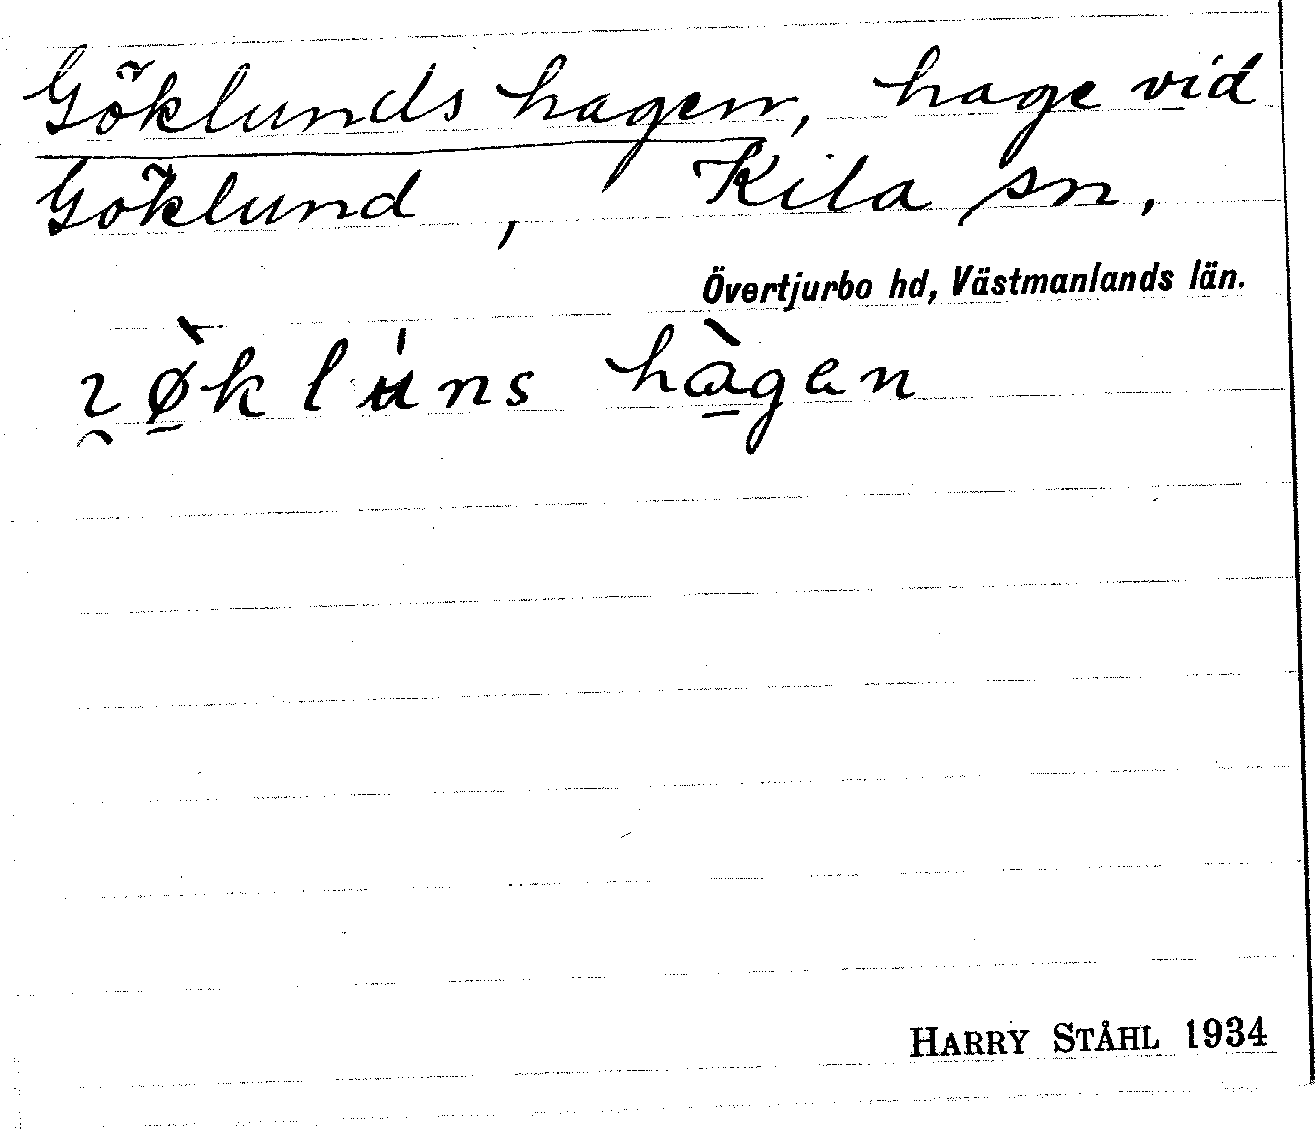 Göklunds hagen, hage vid
Göklund, Kila sn,
Övertjurbo hd, Västmanlands län.
ɿø̀klu̍ns hàgen
HARRY STÅHL 1934